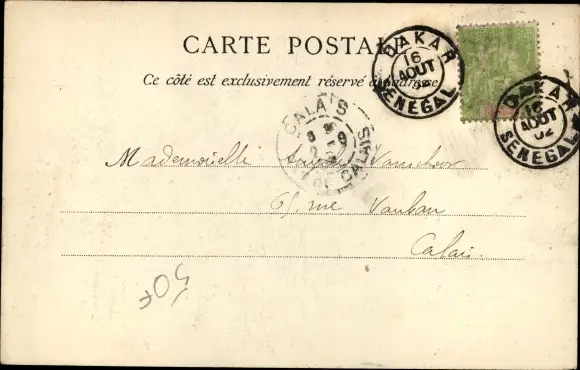 CARTE POSTALE
Ce côté est exclusivement réservé à l'adresse
DAKAR
16
AOUT
02
SENEGAL
DAKAR
16
AOUT
02
SENEGAL
CALAIS
CALAIS
Mademoiselle
rue Vauban
Calais.
50F